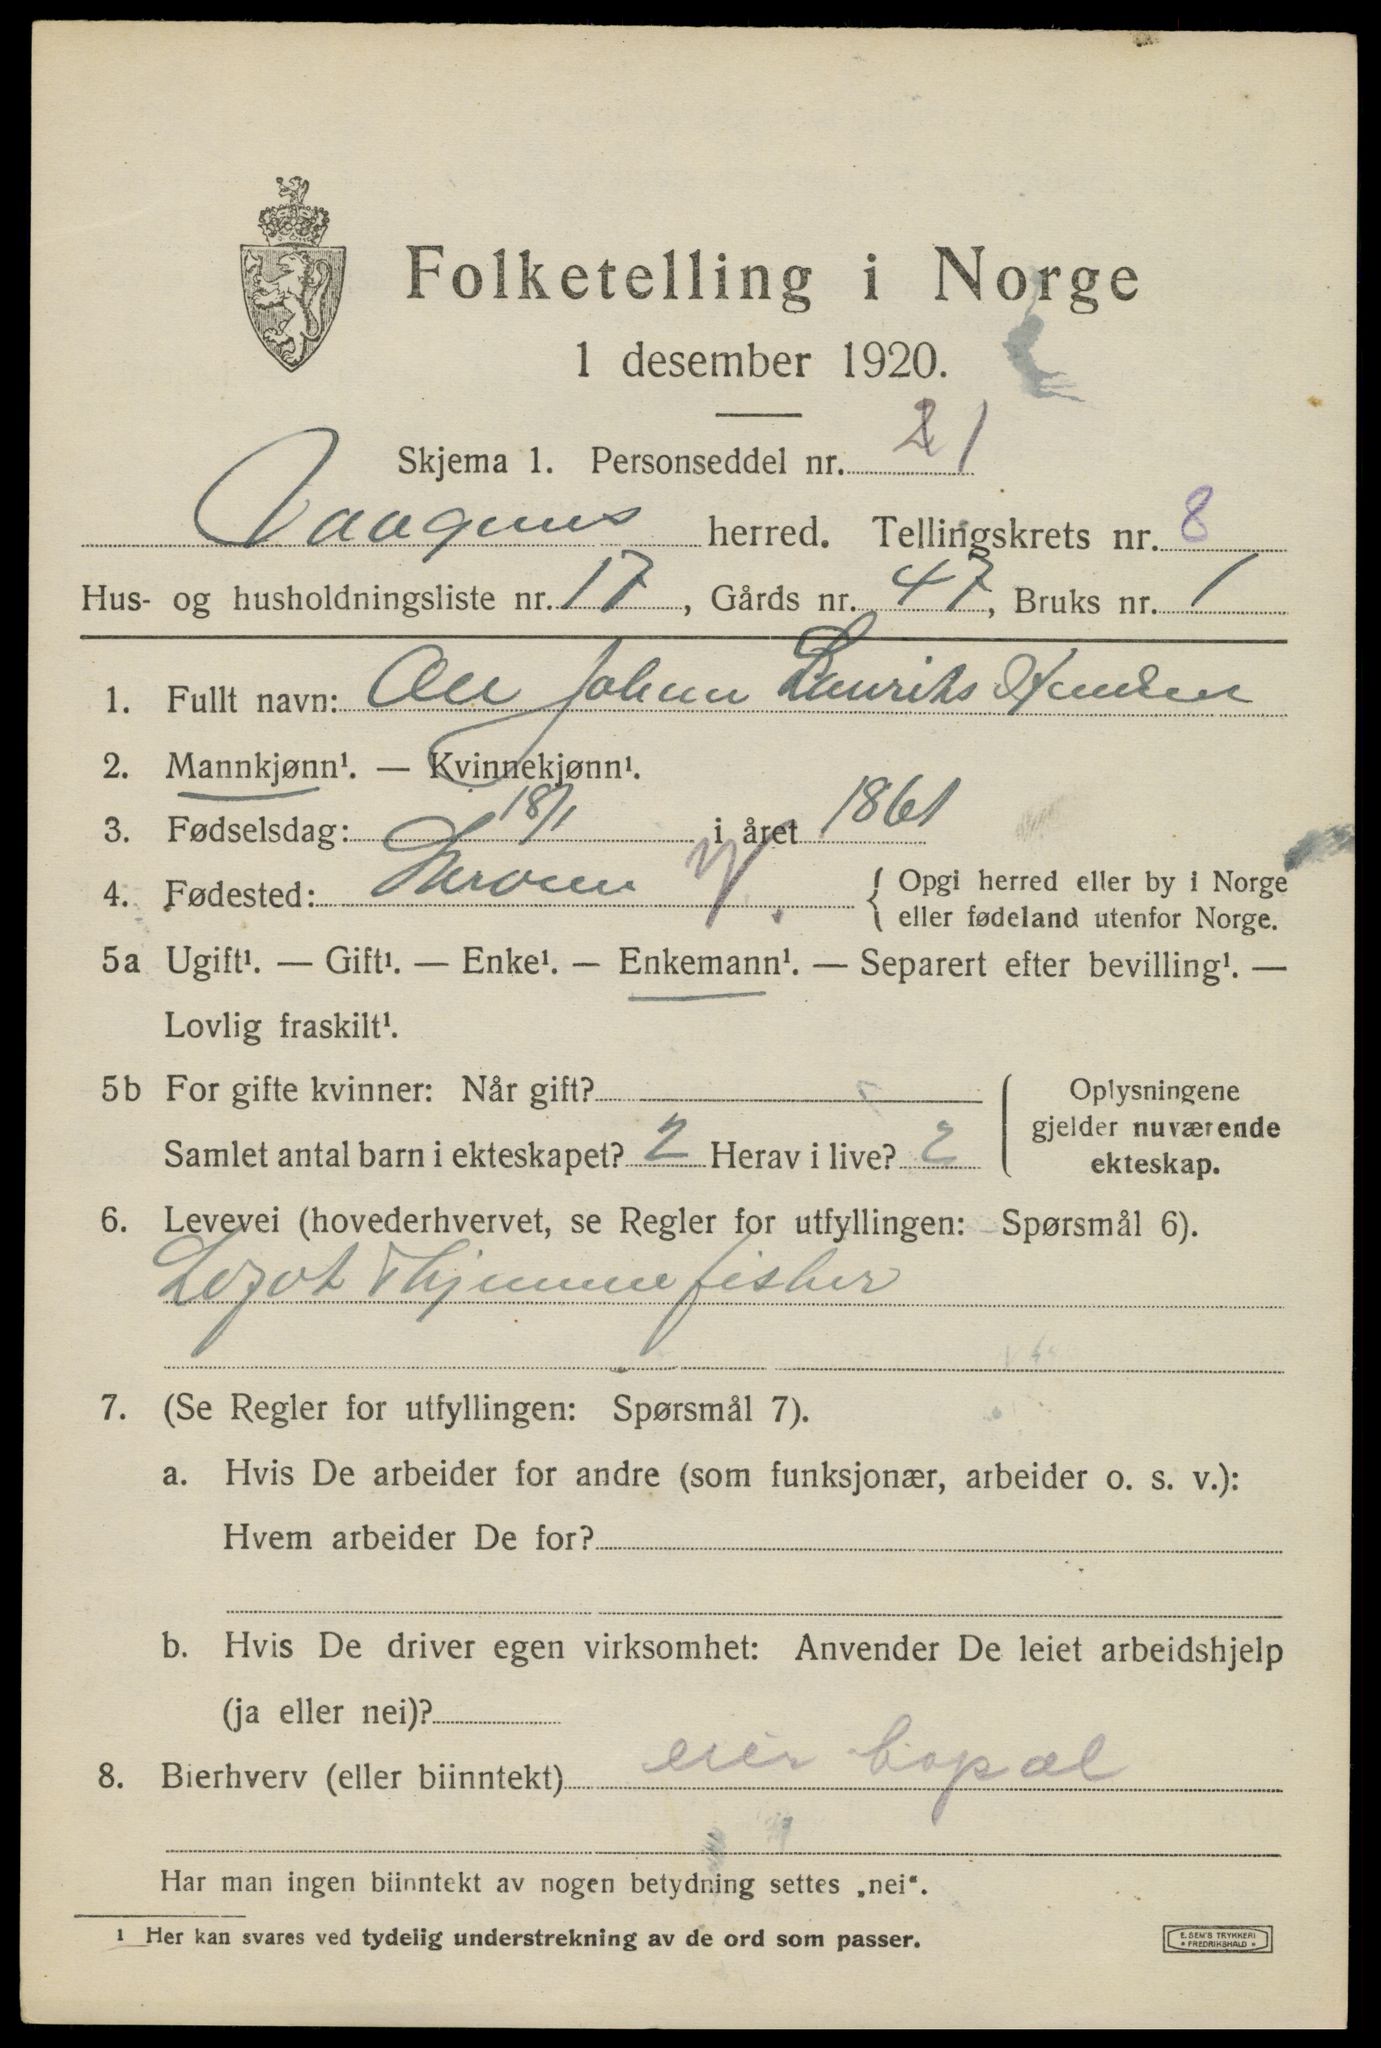 Folketelling i Norge
1 desember 1920.
Skjema 1. Personseddel nr. 21
Vaagnes herred. Tellingskrets nr. 8
Hus- og husholdningsliste nr. 17, Gårds nr. 47, Bruks nr. 1
1. Fullt navn: Ole Johan Laurits
2. Mannkjønn¹. — Kvinnekjønn¹.
3. Fødselsdag: 18/1 i året 1861
4. Fødested: { Opgi herred eller by i Norge
eller fødeland utenfor Norge.
5a Ugift¹. — Gift¹. — Enke¹. — Enkemann¹. — Separert efter bevilling¹. —
Lovlig fraskilt¹.
5b For gifte kvinner: Når gift?
Samlet antal barn i ekteskapet? 2 Herav i live? 2
Oplysningene
gjelder nuværende
ekteskap.
6. Levevei (hovederhvervet, se Regler for utfyllingen: Spørsmål 6).
Lofot & hjemmefisker
7. (Se Regler for utfyllingen: Spørsmål 7).
a. Hvis De arbeider for andre (som funksjonær, arbeider o. s. v.):
Hvem arbeider De for?
b. Hvis De driver egen virksomhet: Anvender De leiet arbeidshjelp
(ja eller nei)?
8. Bierhverv (eller biinntekt) eier bopæl
Har man ingen biinntekt av nogen betydning settes „nei“.
¹ Her kan svares ved tydelig understrekning av de ord som passer.
E. SEM'S TRYKKERI
• FREDRIKSHALD •